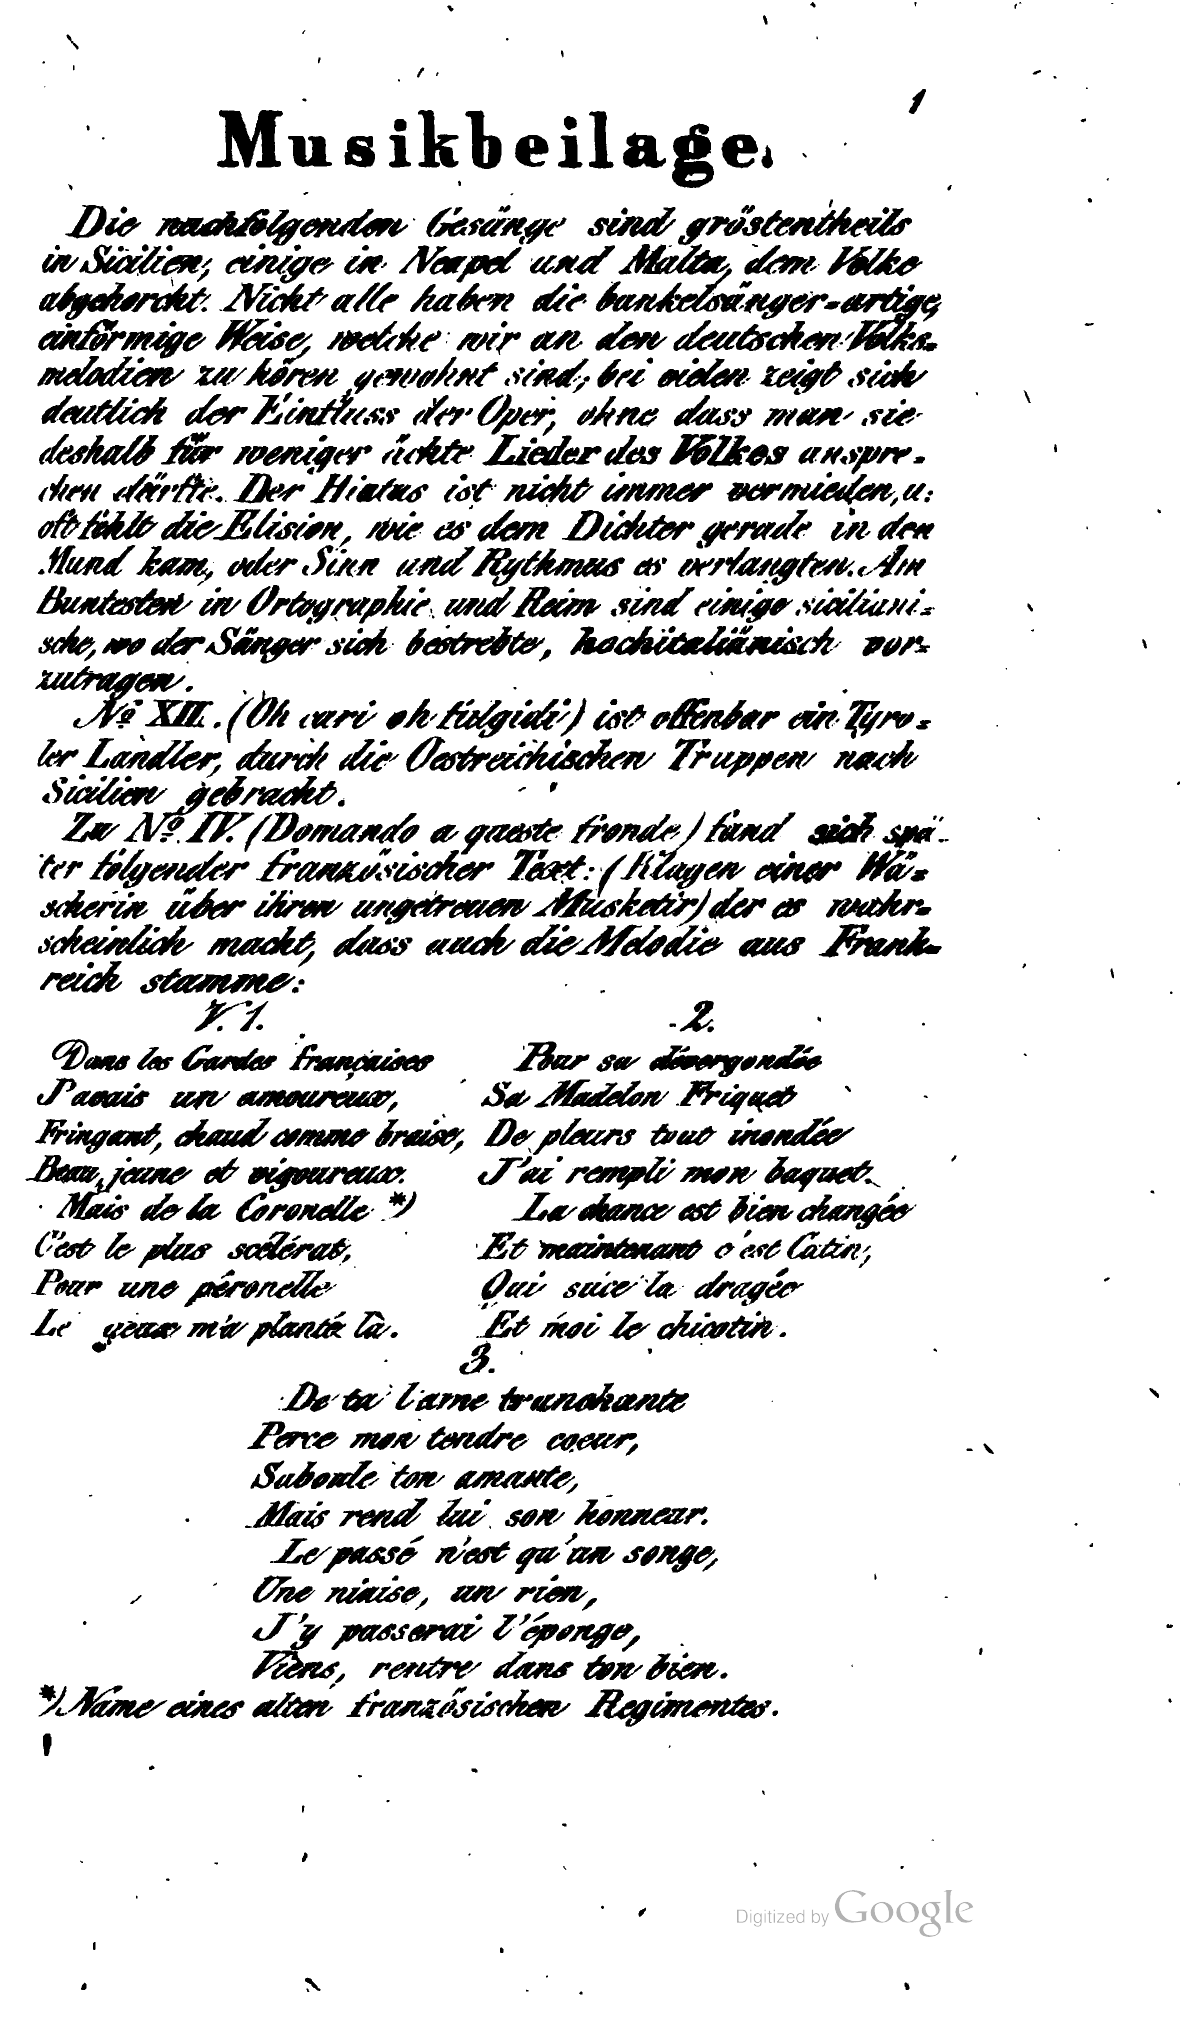 1
Musikbeilage.
Die nachfolgenden Gesänge sind gröstentheils
in Sicilien, einige in Neapel und Malta, dem Volke
abgehorcht. Nicht alle haben die bankelsänger=artige,
einförmige Weise, welche wir an den deutschen Volks=
melodien zu hören gewohnt sind; bei vielen zeigt sich
deutlich der Einfluss der Oper, ohne dass man sie
deshalb für weniger ächte Lieder des Volkes anspre=
chen dürfte. Der Hiatus ist nicht immer vermieden, u:
oft fehlt die Elision, wie es dem Dichter gerade in den
Mund kam, oder Sinn und Rythmus es verlangten. Am
Buntesten in Ortographie und Reim sind einige siciliani=
sche, wo der Sänger sich bestrebte, hochitaliänisch vor=
zutragen.
No XII. (Oh cari oh fulgidi) ist offenbar ein Tyro=
ler Landler, durch die Oestreichischen Truppen nach
Sicilien gebracht.
Zu No IV. (Domando a queste fronde) fand sich spä=
ter folgender französischer Text: (Klagen einer Wä=
scherin über ihren ungetreuen Musketir) der es wahr=
scheinlich macht, dass auch die Melodie aus Frank=
reich stamme:
V. 1.
Dans les Gardes françaises
J'avais un amoureux,
Fringant, chaud comme braise,
Beau, jeune et vigoureux.
Mais de la Coronelle *)
C'est le plus scélérat,
Pour une péronelle
Le gueux m'a planté là.
2.
Pour sa dévergondée
Sa Madelon Friquet
De pleurs tout inondée
J'ai rempli mon baquet.
La chance est bien changée
Et maintenant c'est Catin,
Qui suce la dragée
Et moi le chicotin.
3.
De ta lame tranchante
Perce mon tendre coeur,
Saboule ton amante,
Mais rend lui son honneur.
Le passé n'est qu'un songe,
Une niaise, un rien,
J'y passerai l'éponge,
Viens, rentre dans ton bien.
*) Name eines alten französischen Regimentes.
Digitized by Google